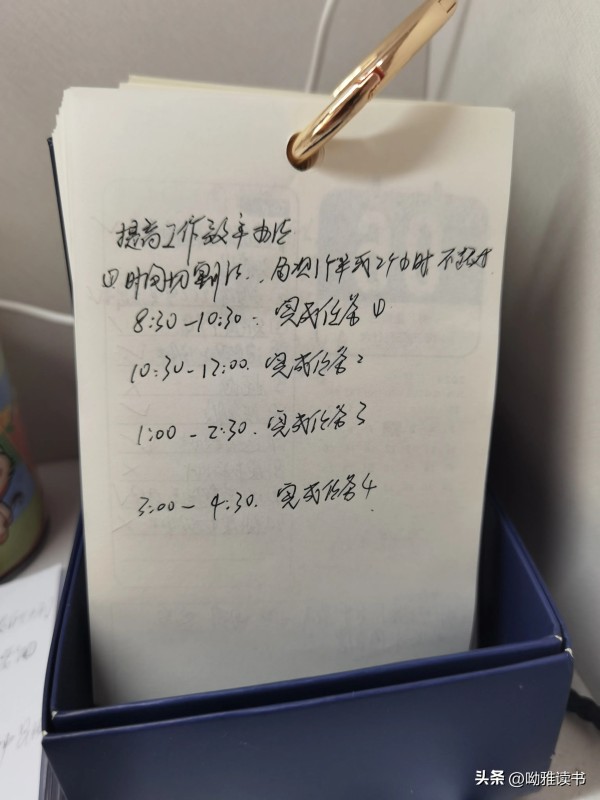 提高工作效率办法
① 时间切割法、每次1个半或2个小时 不
8:30-10:30. 完成任务①
10:30-12:00. 完成任务2
1:00-2:30. 完成任务3
3:00-4:30. 完成任务4
头条 @呦雅读书